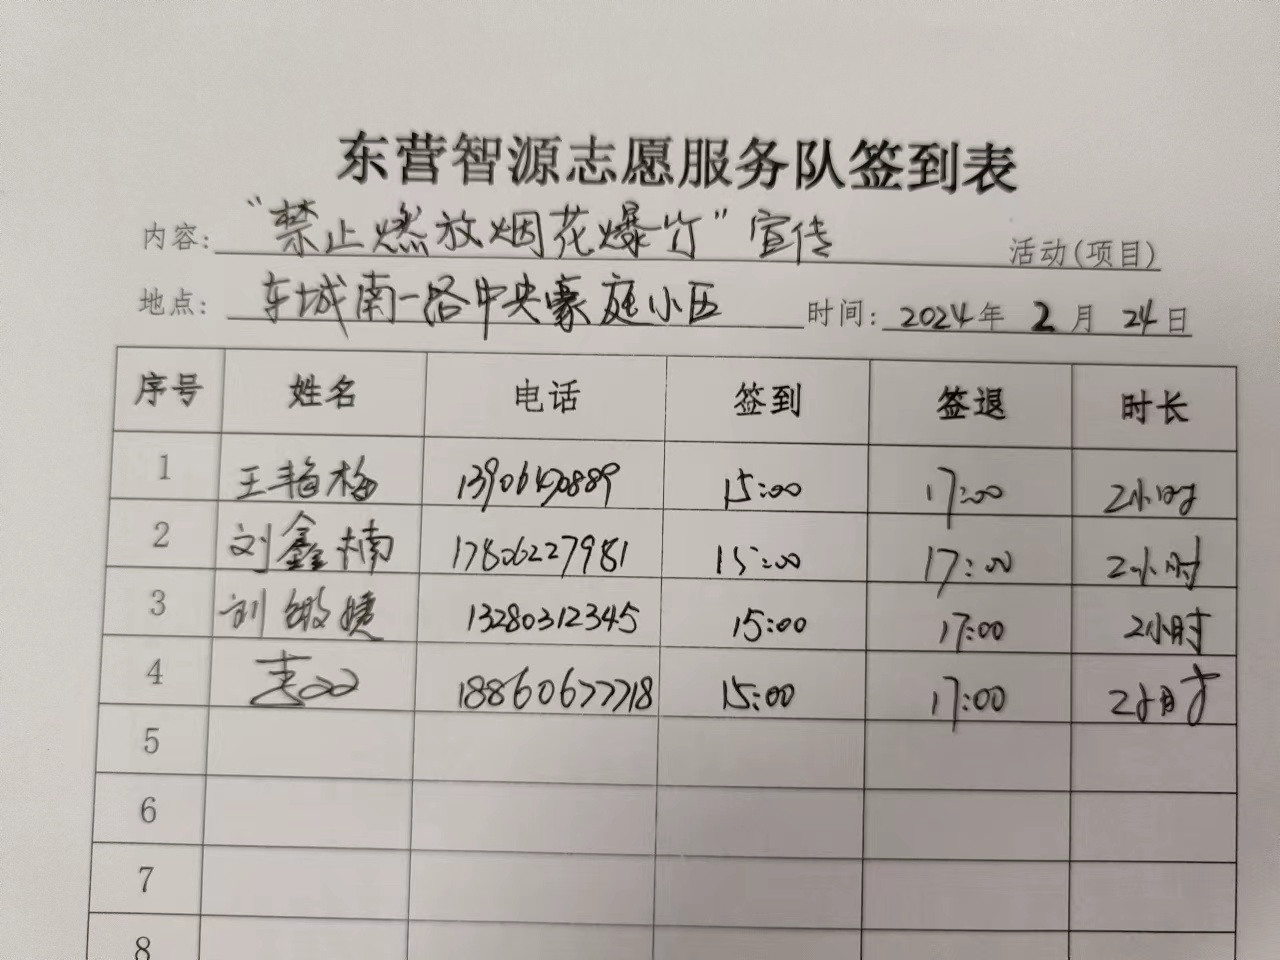 东营智源志愿服务队签到表
内容: “禁止燃放烟花爆竹”宣传 活动(项目)
地点: 东城南一路中央豪庭小区 时间: 2024年 2 月 24日
序号 姓名 电话 签到 签退 时长
1 王艳梅 13906490889 15:00 17:00 2小时
2 刘鑫楠 17806227981 15:00 17:00 2小时
3 刘敏婕 13280312345 15:00 17:00 2小时
4 18860677718 15:00 17:00 2小时
5
6
7
8